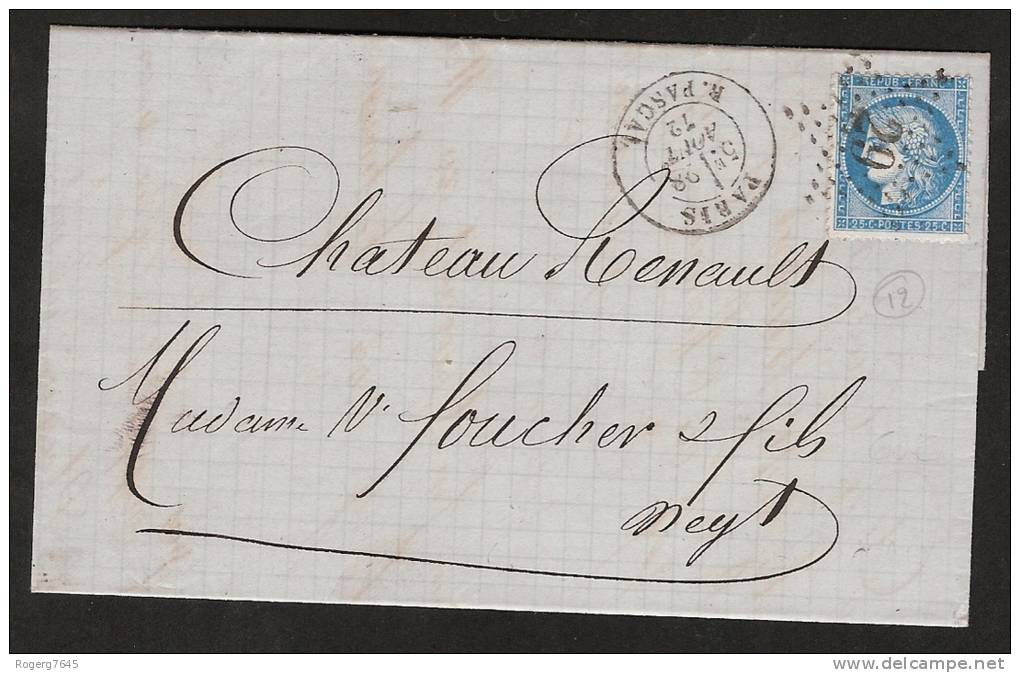 PARIS R. PASCAL
5E
28
AOUT
72
REPUB. FRANC.
29
25 C. POSTES 25 C
Chateau Renault
12
Madame Ve Foucher & fils
Negt
Rogerg7645
www.delcampe.net